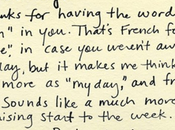 nks for having the word
n" in you. That's French fo
e", in "case you weren't aw
day, but it makes me think
more as "my day," and fr
Sounds like a much more
ising start to the week.